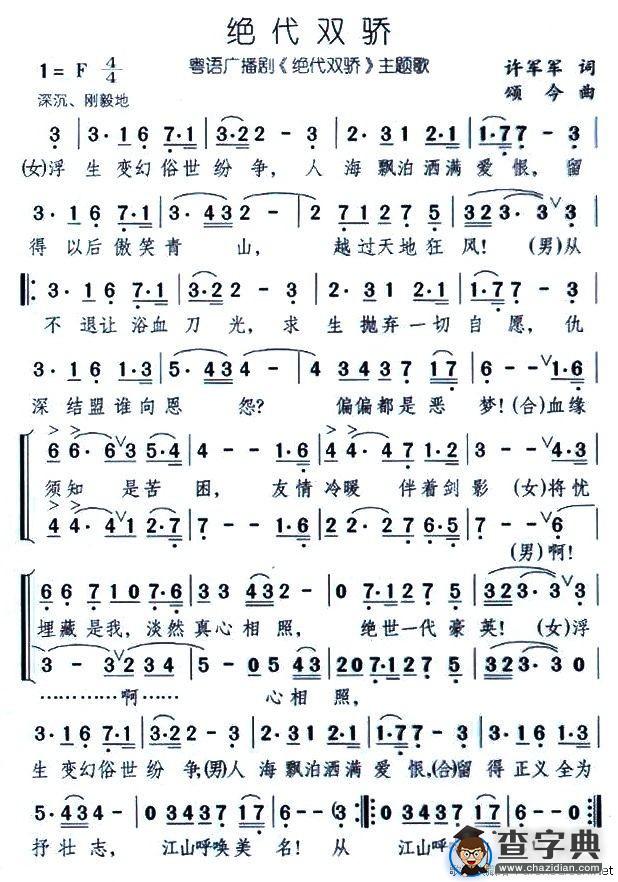 绝代双骄
1= F 4/4
粤语广播剧《绝代双骄》主题歌
许军军 词
深沉、刚毅地
颂今 曲
3 | 3· 1 6 7·1 | 3·2 2 - 3 | 2· 3 1 2·1 | 1·7 7 - 3 |
(女)浮 生 变幻俗世纷争, 人 海飘泊洒满爱恨, 留
3· 1 6 7·1 | 3· 4 3 2 - | 2 7 1 2 7 5 | 3 2 3 3· ∨ 3 |
得 以后傲笑青 山, 越过天地狂风! (男)从
‖: 3· 1 6 7·1 | 3·2 2 - 3 | 2· 3 1 2·1 | 1·7 7 - 3 |
不 退让浴血刀光, 求生抛弃一切自愿, 仇
3· 1 6 1·3 | 5· 4 3 4 - | 4 3 4 3 7 1 7 | 6 - - ∨ 1·6 |
深 结盟谁向恩 怨? 偏偏都是恶梦! (合)血缘
6 6· 6 ∨ 3 5·4 | 4 - - 1·6 | 4 4· 4 7 1·2 | 3 - ∨ 4·3 |
须知 是苦困, 友情冷暖 伴着剑影 (女)将忧
4 4· 4 1 2·7 | 2 - - 1·6 | 2 2· 2 7 6·5 | 7 - ∨ 6 |
(男)啊!
6 6 7 1 0 7·6 | 3 3 4 3 4 - | 0 7·1 2 7 5 | 3 2 3 3· ∨ 3 |
埋藏是我, 淡然真心相照, 绝世一代豪英! (女)浮
3 - 3 ∨ 2 3 4 | 5 - 0 5 4 3 | 2 0 7·1 2 7 5 | 3 2 3 3 0 |
…………啊…… 心相照,
3· 1 6 7·1 | 3·2 2 - 3 | 2· 3 1 2·1 | 1·7 7 - 3 | 3· 1 6 1·3 |
生 变幻俗世纷争,(男)人 海飘泊洒满爱恨,(合)留 得正义全为
5· 4 3 4 - | 0 3 4 3 7 1 7 | 6 - - (3· :‖ 0 3 4 3 7 1 7 | 6 - - ) ‖
抒壮志, 江山呼唤美名! 从 江山呼
查字典
www.chazidian.com